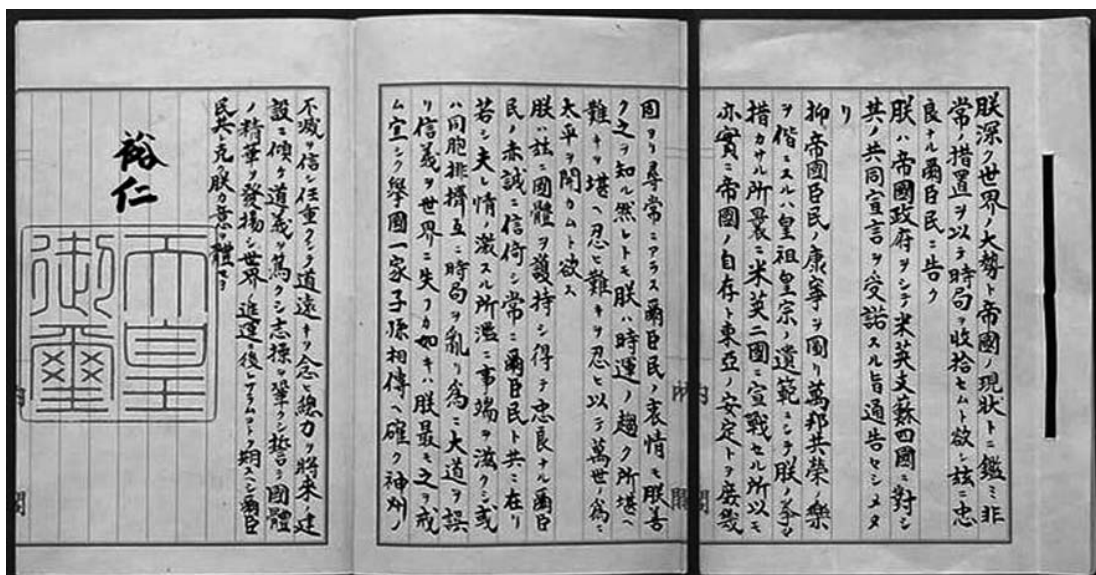 朕深ク世界ノ大勢ト帝國ノ現状トニ鑑ミ非
常ノ措置ヲ以テ時局ヲ收拾セムト欲シ茲ニ忠
良ナル爾臣民ニ告ク
朕ハ帝國政府ヲシテ米英支蘇四國ニ對シ
其ノ共同宣言ヲ受諾スル旨通告セシメタ
リ
抑〻帝國臣民ノ康寧ヲ圖リ萬邦共榮ノ樂
ヲ偕ニスルハ皇祖皇宗ノ遺範ニシテ朕ノ拳々
措カサル所曩ニ米英二國ニ宣戰セル所以モ
亦實ニ帝國ノ自存ト東亞ノ安定トヲ庶幾
内閣
固ヨリ尋常ニアラス爾臣民ノ衷情モ朕善
ク之ヲ知ル然レトモ朕ハ時運ノ趨ク所堪ヘ
難キヲ堪ヘ忍ヒ難キヲ忍ヒ以テ萬世ノ爲ニ
太平ヲ開カムト欲ス
朕ハ茲ニ國體ヲ護持シ得テ忠良ナル爾臣
民ノ赤誠ニ信倚シ常ニ爾臣民ト共ニ在リ
若シ夫レ情ノ激スル所濫ニ事端ヲ滋クシ或
ハ同胞排擠互ニ時局ヲ亂リ爲ニ大道ヲ誤
リ信義ヲ世界ニ失フカ如キハ朕最モ之ヲ戒
ム宜シク擧國一家子孫相傳ヘ確ク神州ノ
不滅ヲ信シ任重クシテ道遠キヲ念ヒ總力ヲ將來ノ建
設ニ傾ケ道義ヲ篤クシ志操ヲ鞏クシ誓テ國體
ノ精華ヲ發揚シ世界ノ進運ニ後レサラムコトヲ期スヘシ爾臣
民其レ克ク朕カ意ヲ體セヨ
裕仁
天皇
御璽